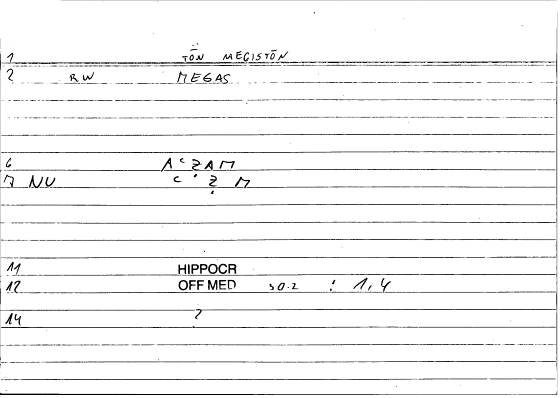 1 TŌN MEGISTŌN
2 RW MEGAS
6 A c ẒAM
7 NU c . Ẓ M
11 HIPPOCR
12 OFF MED 30.2 : 1,4
14 ?